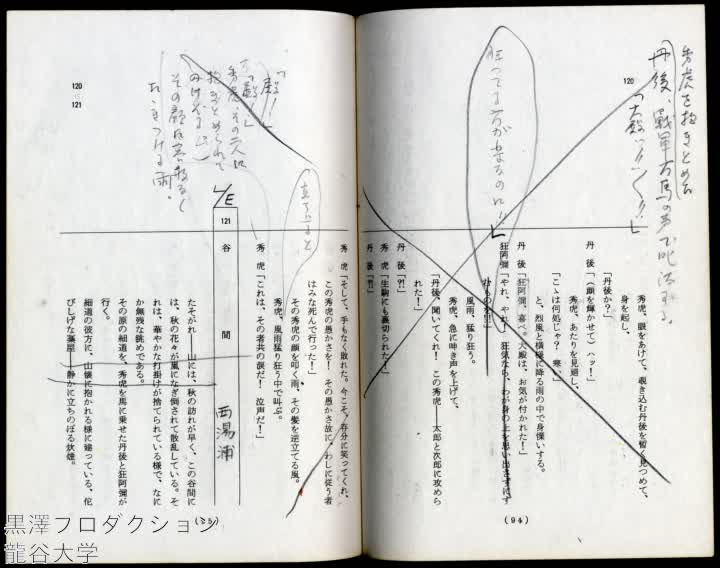 秀虎を抱きとめた
丹後、戦軍万馬の声で叱咤する。
「大殿ッ！！」
120
狂ってる方が幸なのに！！
秀虎、眼をあけて、覗き込む丹後を暫く見つめて、
身を起し、
「丹後か？」
丹　後「（顔を輝かせて）ハッ！」
秀虎、あたりを見廻し、
「こゝは何処じゃ？　寒い」
と、烈風と横様に降る雨の中で身慄いする。
丹　後「狂阿彌、喜べ。大殿は、お気が付かれた！」
狂阿彌「やれ、やれ！　狂気なら、わが身の上を思い出さずにす
むものを！」
風雨、猛り狂う。
秀虎、急に呻き声を上げて、
「丹後、聞いてくれ！　この秀虎――太郎と次郎に攻めら
れた！」
丹　後「?!」
秀　虎「生駒にも裏切られた！」
丹　後「?!」
（94）
秀　虎「そして、手もなく敗れた。今こそ、存分に笑ってくれ、
この秀虎の愚かさを！　その愚かさ故に、わしに従う者
はみな死んで行った！」
その秀虎の顔を叩く雨、その髪を逆立てる風。
秀虎、風雨猛り狂う中で叫ぶ。
秀　虎「これは、その者共の涙だ！　泣声だ！」
立ち上ると
「殿！」
「殿！」
秀虎、その人に
抱きとめられて
その顔に容赦なく
たゝきつける雨。
120
121
L/E
121　谷　間
西湯浦
たそがれ――山には、秋の訪れが早く、この谷間に
は、秋の花々が風になぎ倒されて散乱している。そ
れは、華やかな打掛けが捨てられている様で、なに
か無残な眺めである。
その原の細道を、秀虎を馬に乗せた丹後と狂阿彌が
行く。
細道の彼方に、山懐に抱かれる様に建っている、侘
びしげな藁屋――静かに立ちのぼる炊煙。
（95）
黒澤プロダクション
龍谷大学